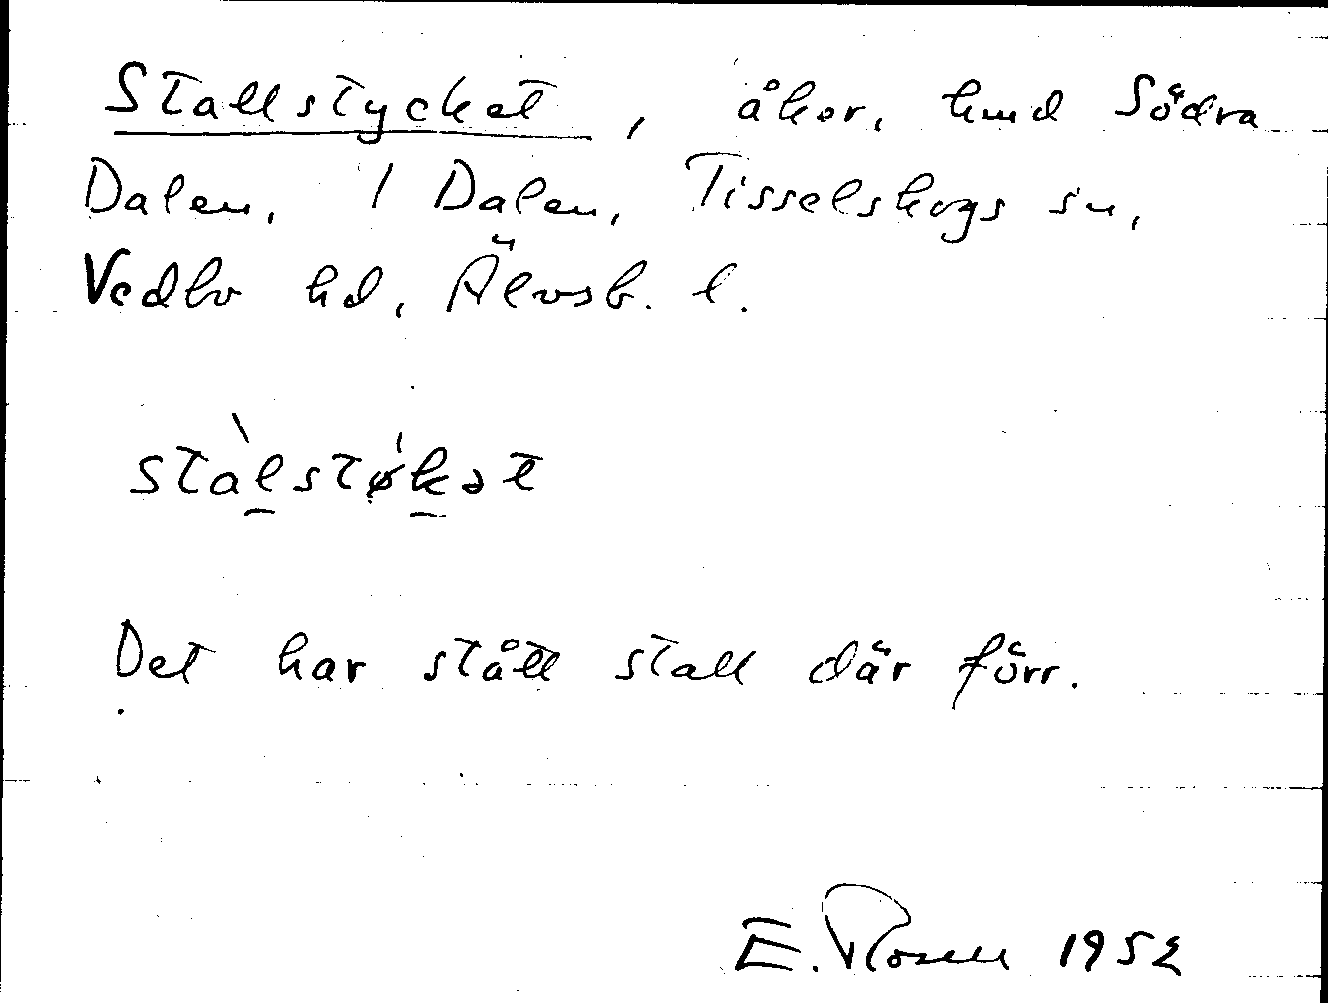 Stallstycket, åker, hmd Södra
Dalen, 1 Dalen, Tisselskogs sn,
Vedbo hd, Älvsb. l.
stàlstøkət
Det har stått stall där förr.
E. Rosell 1952